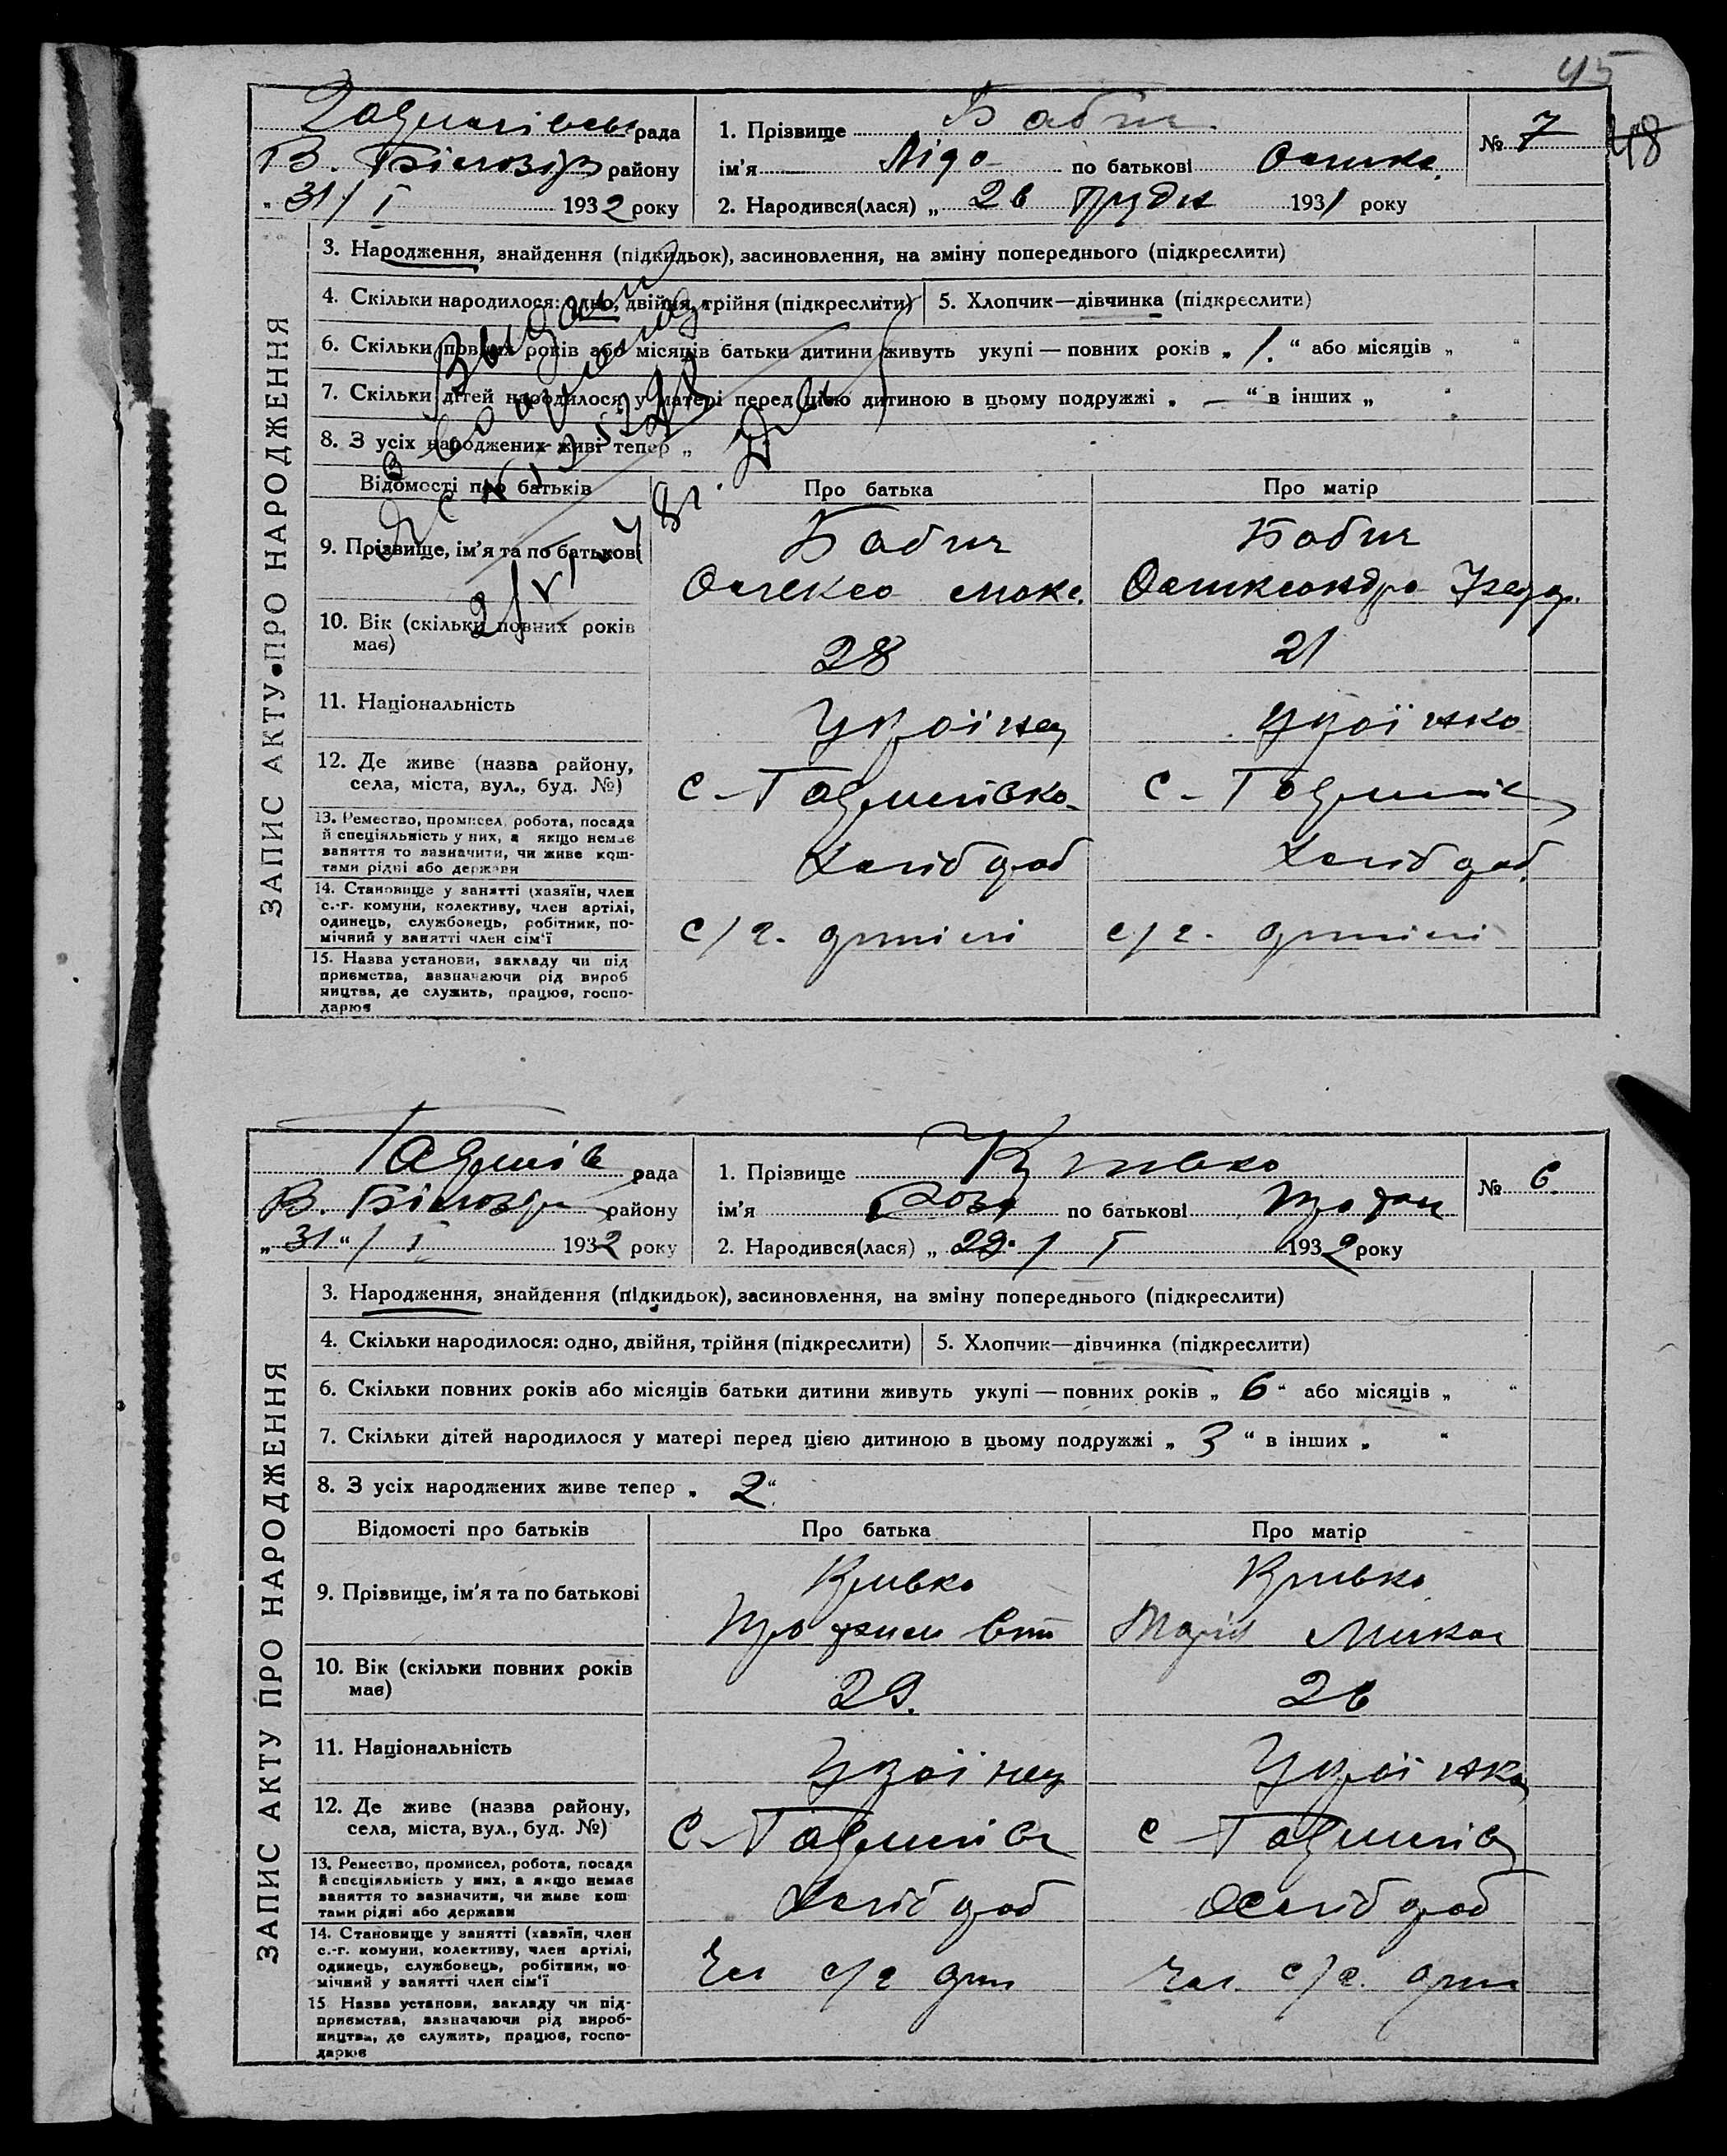 45
48
рада
В. Білозір району
„ 31 / I 1932 року
1. Прізвище Бабич
ім'я Ліда по батькові Олекс.
2. Народився(лася) „ 26 Грудн 1931 року
№ 7
ЗАПИС АКТУ ПРО НАРОДЖЕННЯ
3. Народження, знайдення (підкидьок), засиновлення, на зміну попереднього (підкреслити)
4. Скільки народилося: одно, двійня, трійня (підкреслити)
5. Хлопчик—дівчинка (підкреслити)
6. Скільки повних років або місяців батьки дитини живуть укупі — повних років „ 1. “ або місяців „ “
7. Скільки дітей народилося у матері перед цією дитиною в цьому подружжі „ — “ в інших „ “
8. З усіх народжених живі тепер „
Відомості про батьків
Про батька
Про матір
9. Прізвище, ім'я та по батькові
Бабич
Олекса Макс.
Бабич
Олександра Федор.
10. Вік (скільки повних років
має)
28
21
11. Національність
Українец
Україінка
12. Де живе (назва району,
села, міста, вул., буд. №)
13. Ремество, промисел, робота, посада
й спеціяльність у них, а якщо немає
заняття то зазначити, чи живе кош-
тами рідні або держави
Хліб роб
Хліб роб.
14. Становище у занятті (хазяїн, член
с.-г. комуни, колективу, член артілі,
одинець, службовець, робітник, по-
мічний у занятті член сім'ї
с/г. артілі
с/г. артілі
15. Назва установи, закладу чи під
приємства, зазначаючи рід вироб
ництва, де служить, працює, госпо-
дарює
рада
В. Білозір району
„ 31 “ / I 1932 року
1. Прізвище Кривко
ім'я по батькові Трохим
2. Народився(лася) „ 29 / I 1932 року
№ 6.
ЗАПИС АКТУ ПРО НАРОДЖЕННЯ
3. Народження, знайдення (підкидьок), засиновлення, на зміну попереднього (підкреслити)
4. Скільки народилося: одно, двійня, трійня (підкреслити)
5. Хлопчик—дівчинка (підкреслити)
6. Скільки повних років або місяців батьки дитини живуть укупі — повних років „ 6 “ або місяців „ “
7. Скільки дітей народилося у матері перед цією дитиною в цьому подружжі „ 3 “ в інших „ “
8. З усіх народжених живе тепер „ 2 “
Відомості про батьків
Про батька
Про матір
9. Прізвище, ім'я та по батькові
Кривко
Трохим
Кривко
Марія Микол
10. Вік (скільки повних років
має)
29.
26
11. Національність
Українец
Україінка
12. Де живе (назва району,
села, міста, вул., буд. №)
13. Ремество, промисел, робота, посада
й спеціяльність у них, а якщо немає
заняття то зазначити, чи живе кош
тами рідні або держави
Хліб роб
Хліб роб
14. Становище у занятті (хазяїн, член
с.-г. комуни, колективу, член артілі,
одинець, службовець, робітник, по
мічний у занятті член сім'ї
Чл с/г арт
Чл. с/г. арт
15 Назва установи, закладу чи під-
приємства, зазначаючи рід вироб-
ництва, де служить, працює, госпо-
дарює